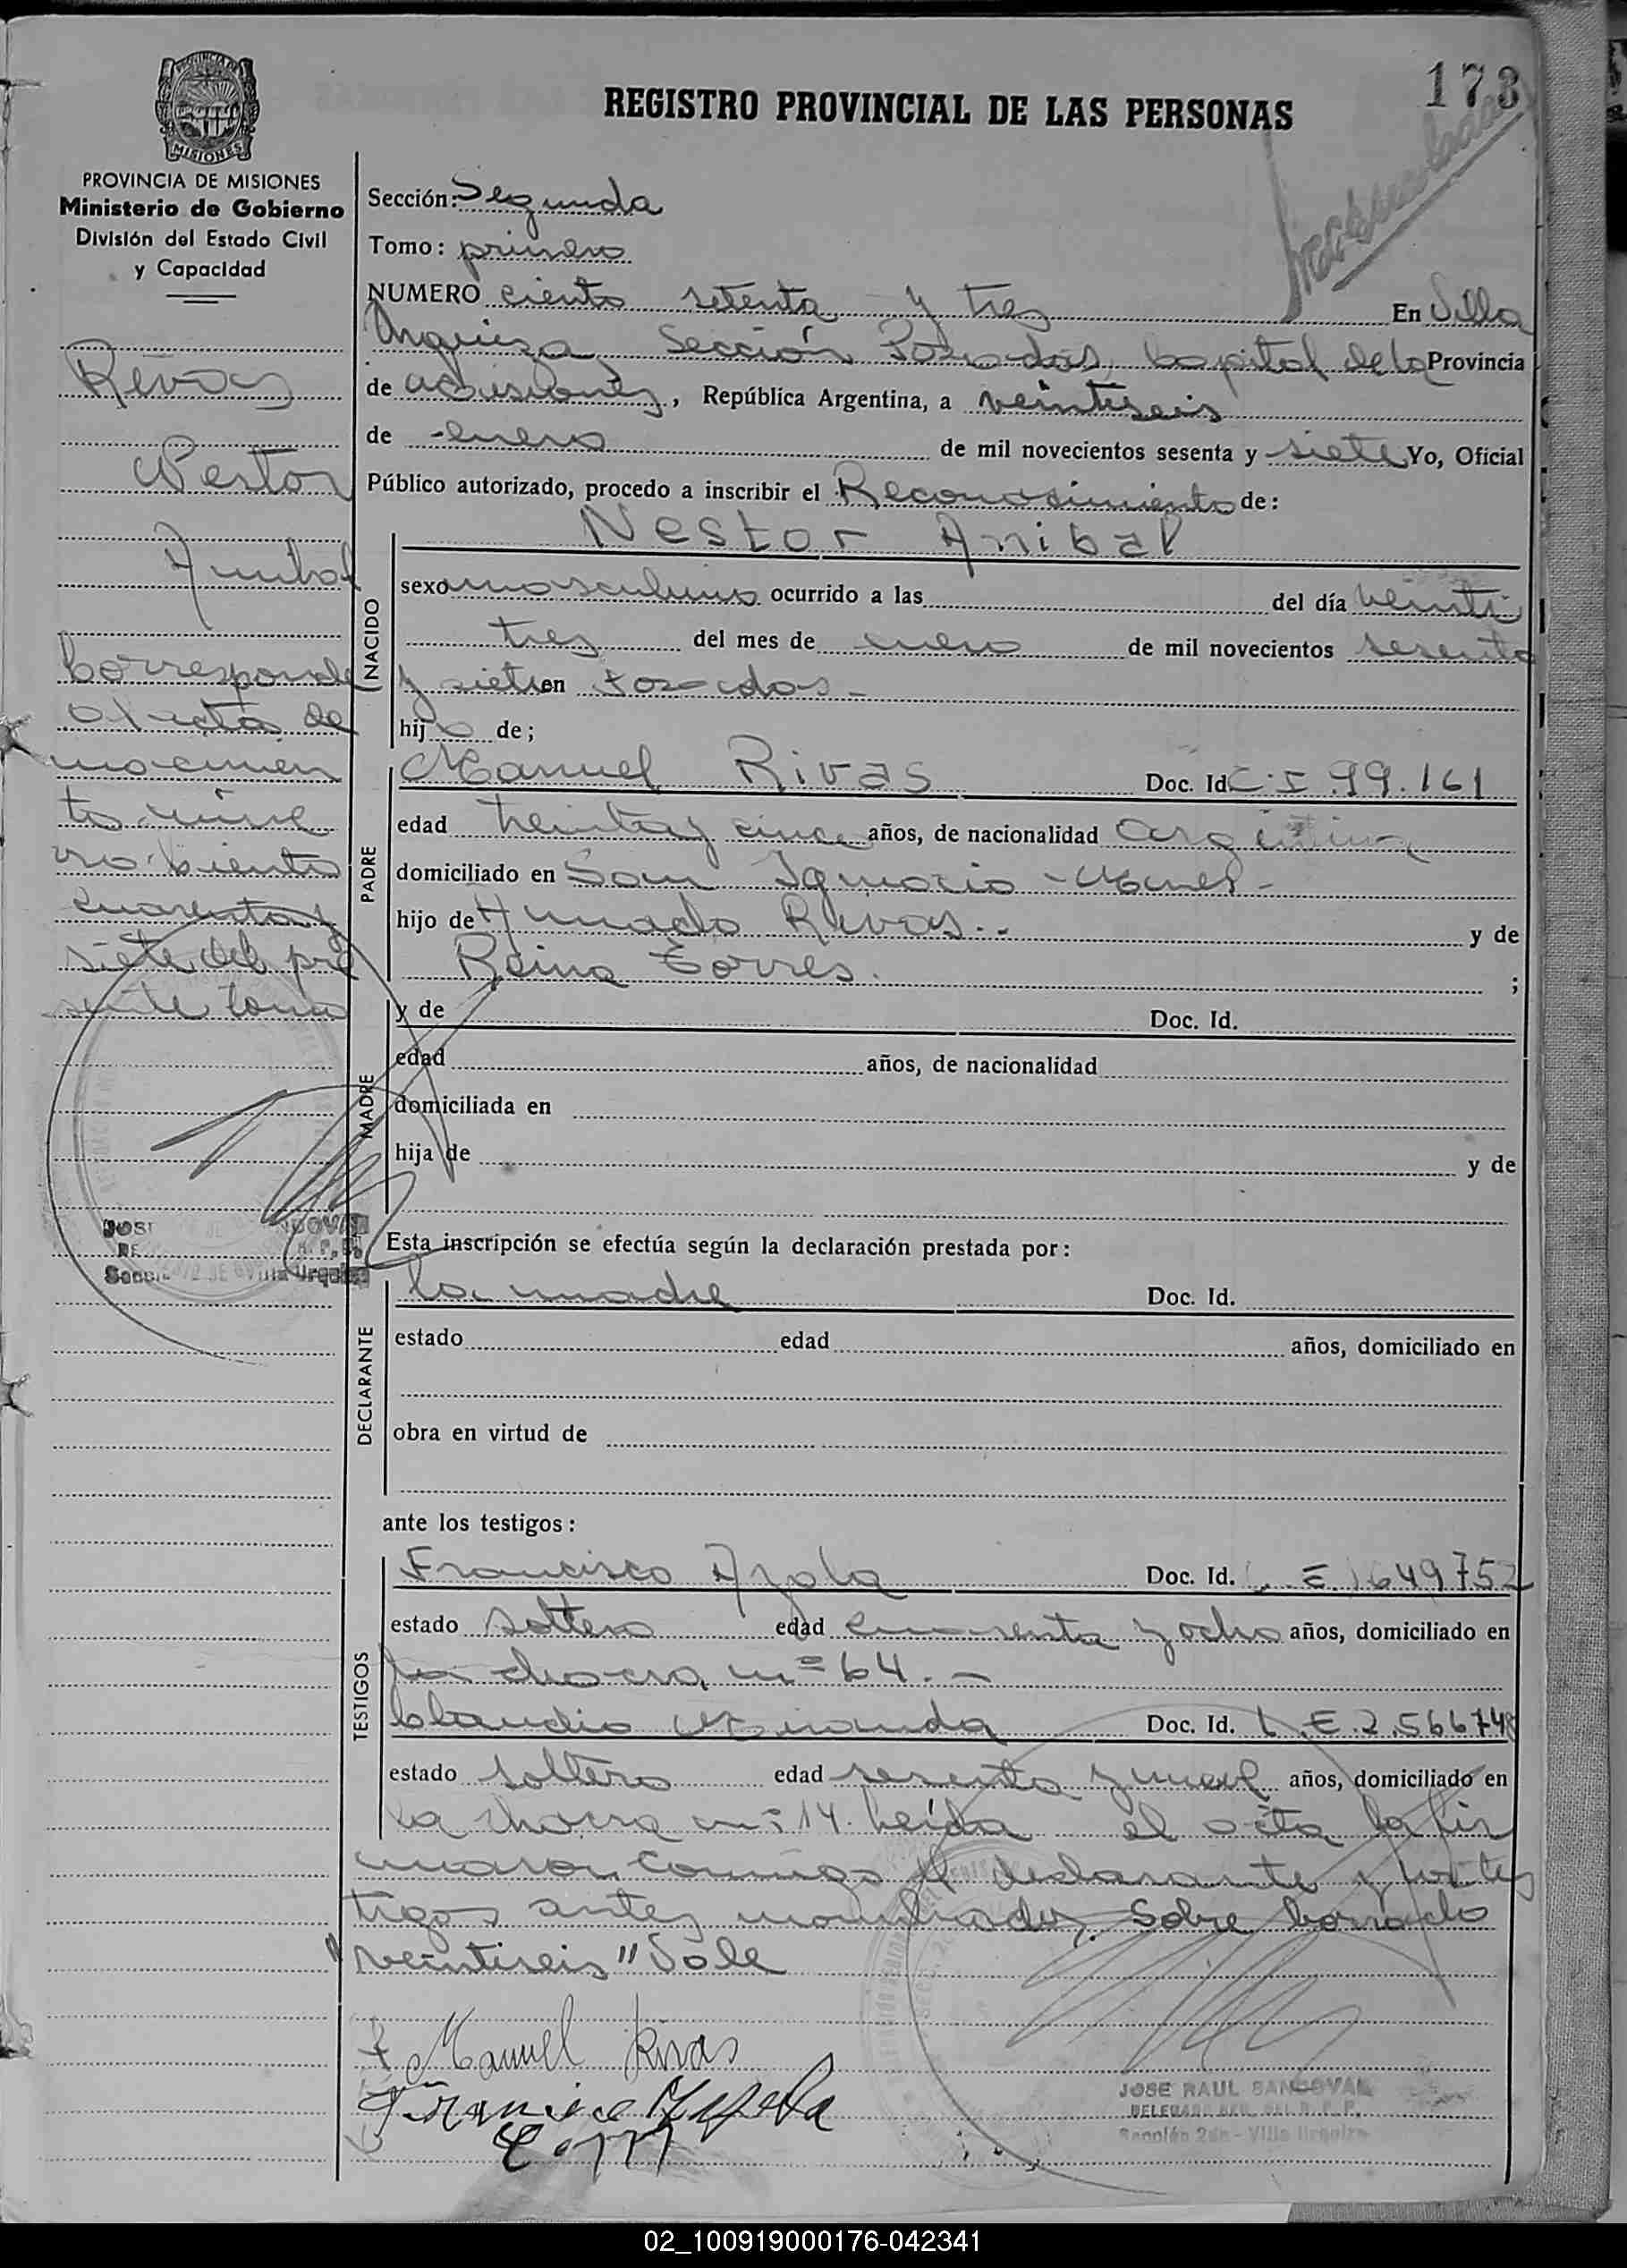 173
REGISTRO PROVINCIAL DE LAS PERSONAS
PROVINCIA DE MISIONES
Ministerio de Gobierno
División del Estado Civil
y Capacidad
Rivas
Nestor
Anibal
Corresponde
al acta de
nacimien
to núme
ro ciento
cuarenta y
siete del pre
sente tomo
Sección: Segunda
Tomo: primero
NUMERO ciento setenta y tres En Villa
Urquiza, Sección Posadas, Capital de la Provincia
de Misiones, República Argentina, a veintiseis
de enero de mil novecientos sesenta y siete Yo, Oficial
Público autorizado, procedo a inscribir el Reconocimiento de:
Nestor Anibal
NACIDO
sexo masculino ocurrido a las del día veinti
tres del mes de enero de mil novecientos sesenta
y siete en Posadas -
hijo de;
PADRE
Manuel Rivas Doc. Id. C.I. 99.161
edad treinta y cinco años, de nacionalidad argentina
domiciliado en San Ignacio -
hijo de Rivas.- y de
Reina Torres. ;
MADRE
y de Doc. Id.
edad años, de nacionalidad
domiciliada en
hija de y de
Esta inscripción se efectúa según la declaración prestada por:
DECLARANTE
la madre Doc. Id.
estado edad años, domiciliado en
obra en virtud de
ante los testigos:
TESTIGOS
Francisco Doc. Id. L.E. 1649752
estado soltero edad cuarenta y ocho años, domiciliado en
la chacra nº 64. -
Claudio Miranda Doc. Id. L.E. 2.566748
estado soltero edad sesenta y nueve años, domiciliado en
la chacra nº 14. Leída el acta la fir
maron conmigo el declarante y los tes
tigos antes nombrados, Sobre borrado
"veintiseis" Vale
Manuel Rivas
JOSE RAUL SANDOVAL
Sección 2da - Villa Urquiza
02_100919000176-042341